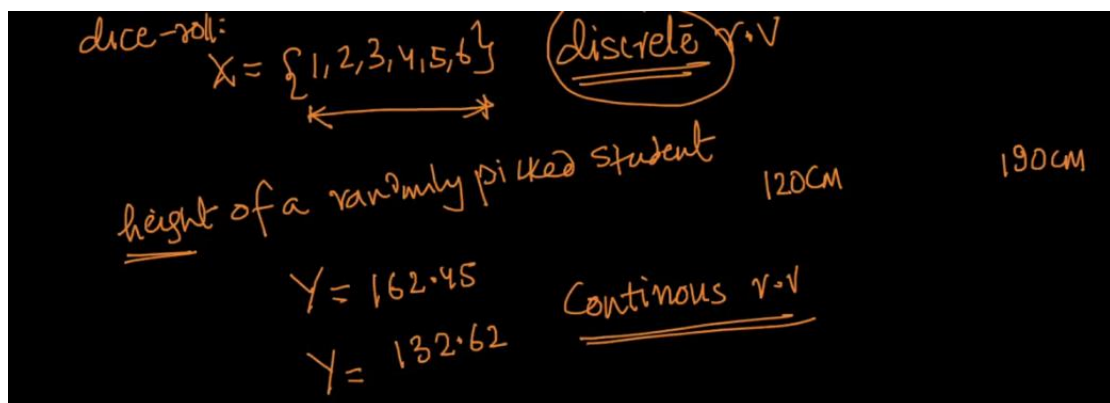 dice-roll:
X = {1,2,3,4,5,6} discrete r.v
height of a randomly picked student 120CM 190CM
Y = 162.45
Continous r.v
Y = 132.62